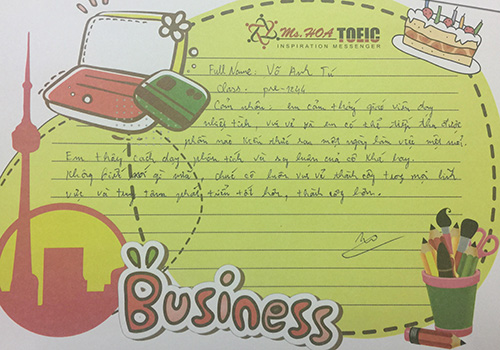 Ms. HOA TOEIC
INSPIRATION MESSENGER
Full Name: Võ Anh Tú
Class: pre-1244
Cảm nhận: em cảm thấy giáo viên dạy
nhiệt tình, vui vẻ và em có thể tiếp thu được
phần nào kiến thức sau một ngày làm việc mệt mỏi.
Em thấy cách dạy phân tích và suy luận của cô khá hay.
Không biết nói gì chúc cô luôn vui vẻ thành công trong mọi lĩnh
vực và trung tâm phát triển tốt hơn, thành công hơn.
Business